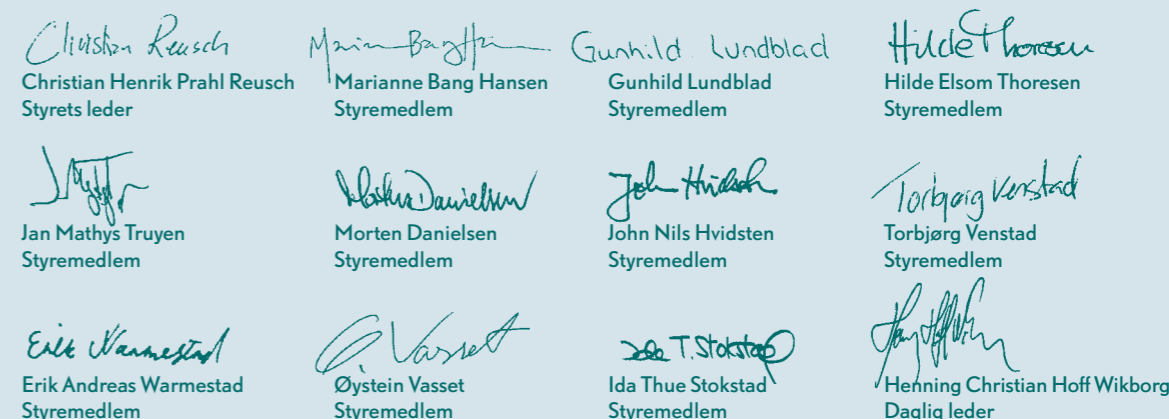 Christian Reusch
Christian Henrik Prahl Reusch
Styrets leder
Marianne Bang Hansen
Styremedlem
Gunhild Lundblad
Gunhild Lundblad
Styremedlem
Hilde Thoresen
Hilde Elsom Thoresen
Styremedlem
Jan Mathys Truyen
Styremedlem
Morten Danielsen
Morten Danielsen
Styremedlem
John Hvidsten
John Nils Hvidsten
Styremedlem
Torbjørg Venstad
Torbjørg Venstad
Styremedlem
Erik Warmestad
Erik Andreas Warmestad
Styremedlem
Ø. Vasset
Øystein Vasset
Styremedlem
Ida T. Stokstad
Ida Thue Stokstad
Styremedlem
Henning Christian Hoff Wikborg
Daglig leder